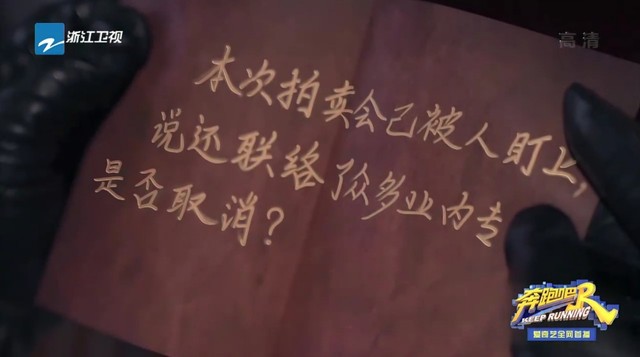 浙江卫视
高清
本次拍卖会已被人盯上,
说还联络了众多业内专
是否取消?
奔跑吧R
KEEP RUNNING
爱奇艺全网首播